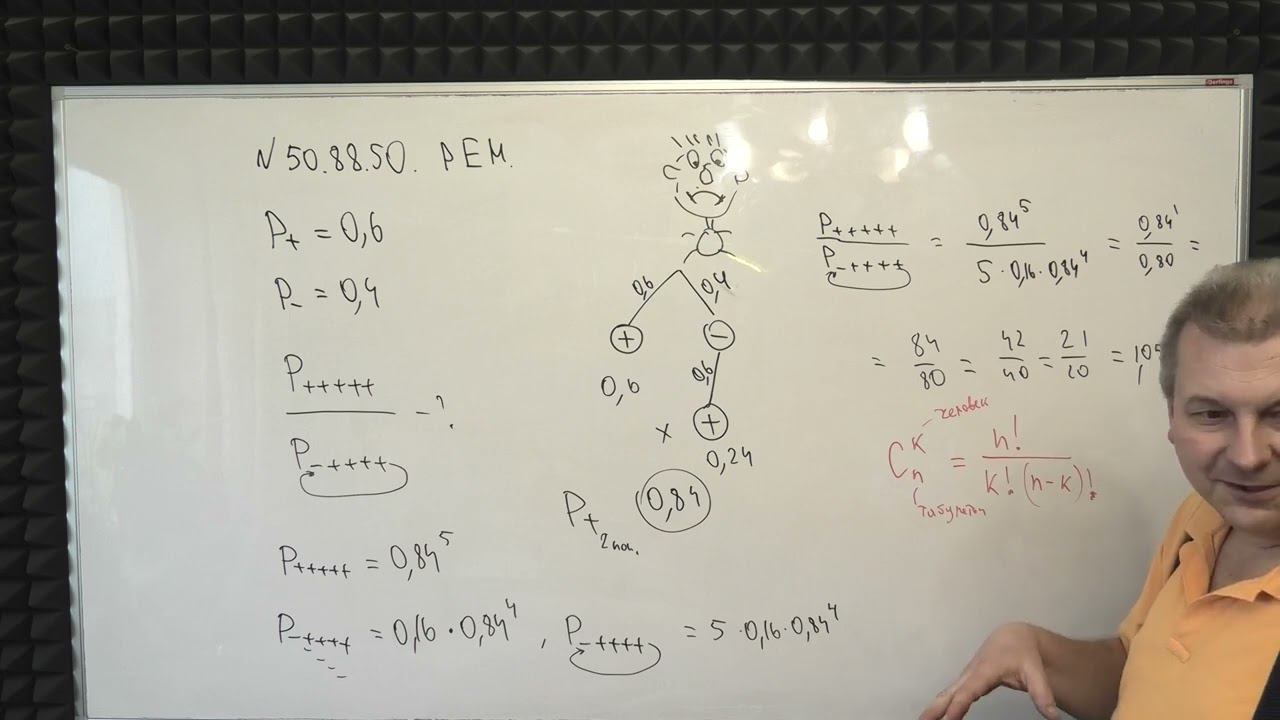 N 50.88.50. РЕМ.
P₊ = 0,6
P₋ = 0,4
P₊₊₊₊₊
P₋₊₊₊₊
- ?
P₊₊₊₊₊ = 0,84⁵
P₋₊₊₊₊ = 0,16 · 0,84⁴ , P₋₊₊₊₊ = 5 · 0,16 · 0,84⁴
0,6 0,4
+ −
0,6 0,6
+
× 0,24
P₊ 2 поп. 0,84
P₊₊₊₊₊ / P₋₊₊₊₊ = 0,84⁵ / 5 · 0,16 · 0,84⁴ = 0,84¹ / 0,80 =
= 84 / 80 = 42 / 40 = 21 / 20 = 1,05
человек
Cₙᵏ = n! / k! (n-k)!
табуреток